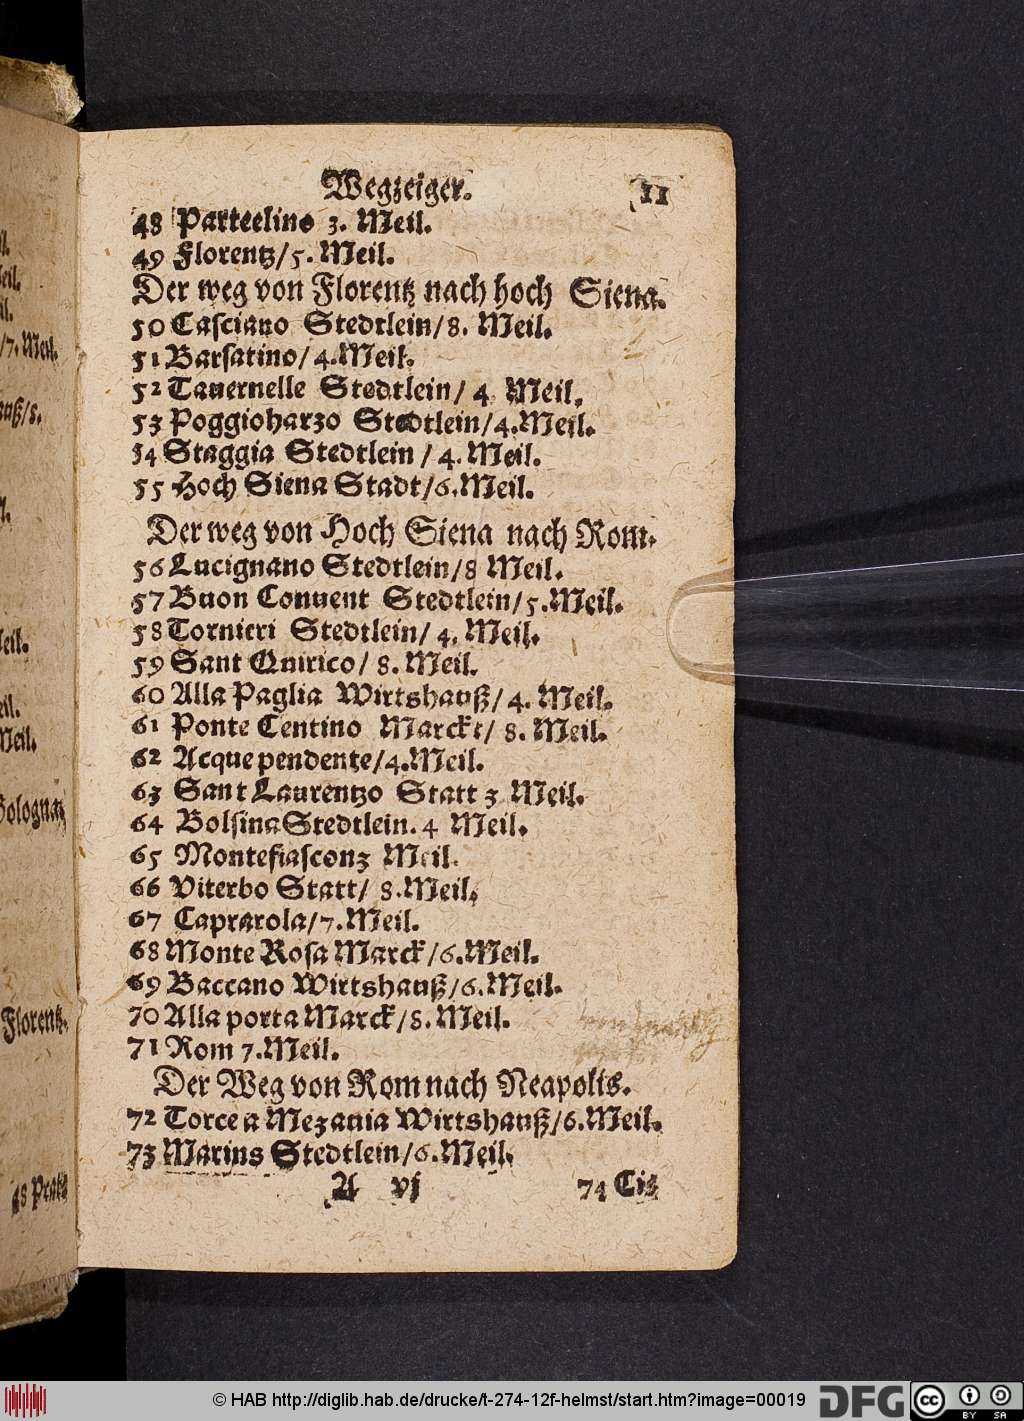 Wegzeiger. 11
48 Parteelino 3. Meil.
49 Florentz/5. Meil.
Der weg von Florentz nach hoch Siena.
50 Casciano Stedtlein/8. Meil.
51 Barsatino/4. Meil.
52 Tauernelle Stedtlein/ 4 Meil.
53 Poggioharzo Stedtlein/4. Meil.
54 Staggia Stedtlein / 4. Meil.
55 Hoch Siena Stadt/6. Meil.
Der weg von Hoch Siena nach Rom.
56 Lucignano Stedtlein/8 Meil.
57 Buon Conuent Stedtlein/5. Meil.
58 Tornieri Stedtlein/ 4. Meil.
59 Sant Quirico/ 8. Meil.
60 Alla Paglia Wirtshauß/ 4. Meil.
61 Ponte Centino Marckt/ 8. Meil.
62 Acque pendente/4. Meil.
63 Sant Laurentzo Statt 3 Meil.
64 Bolsina Stedtlein. 4 Meil.
65 Montefiascon 3 Meil.
66 Viterbo Statt/ 8. Meil.
67 Caprarola/7. Meil.
68 Monte Rosa Marck/6. Meil.
69 Baccano Wirtshauß/6. Meil.
70 Alla porta Marck/8. Meil.
71 Rom 7. Meil.
Der Weg von Rom nach Neapolis.
72 Torce a Mezauia Wirtshauß/6. Meil.
73 Marins Stedtlein/6. Meil.
A vj 74 Cis
/7. Meil.
Bolognaz
Florentz.
48 Prata
© HAB http://diglib.hab.de/drucke/t-274-12f-helmst/start.htm?image=00019
DFG
cc BY SA